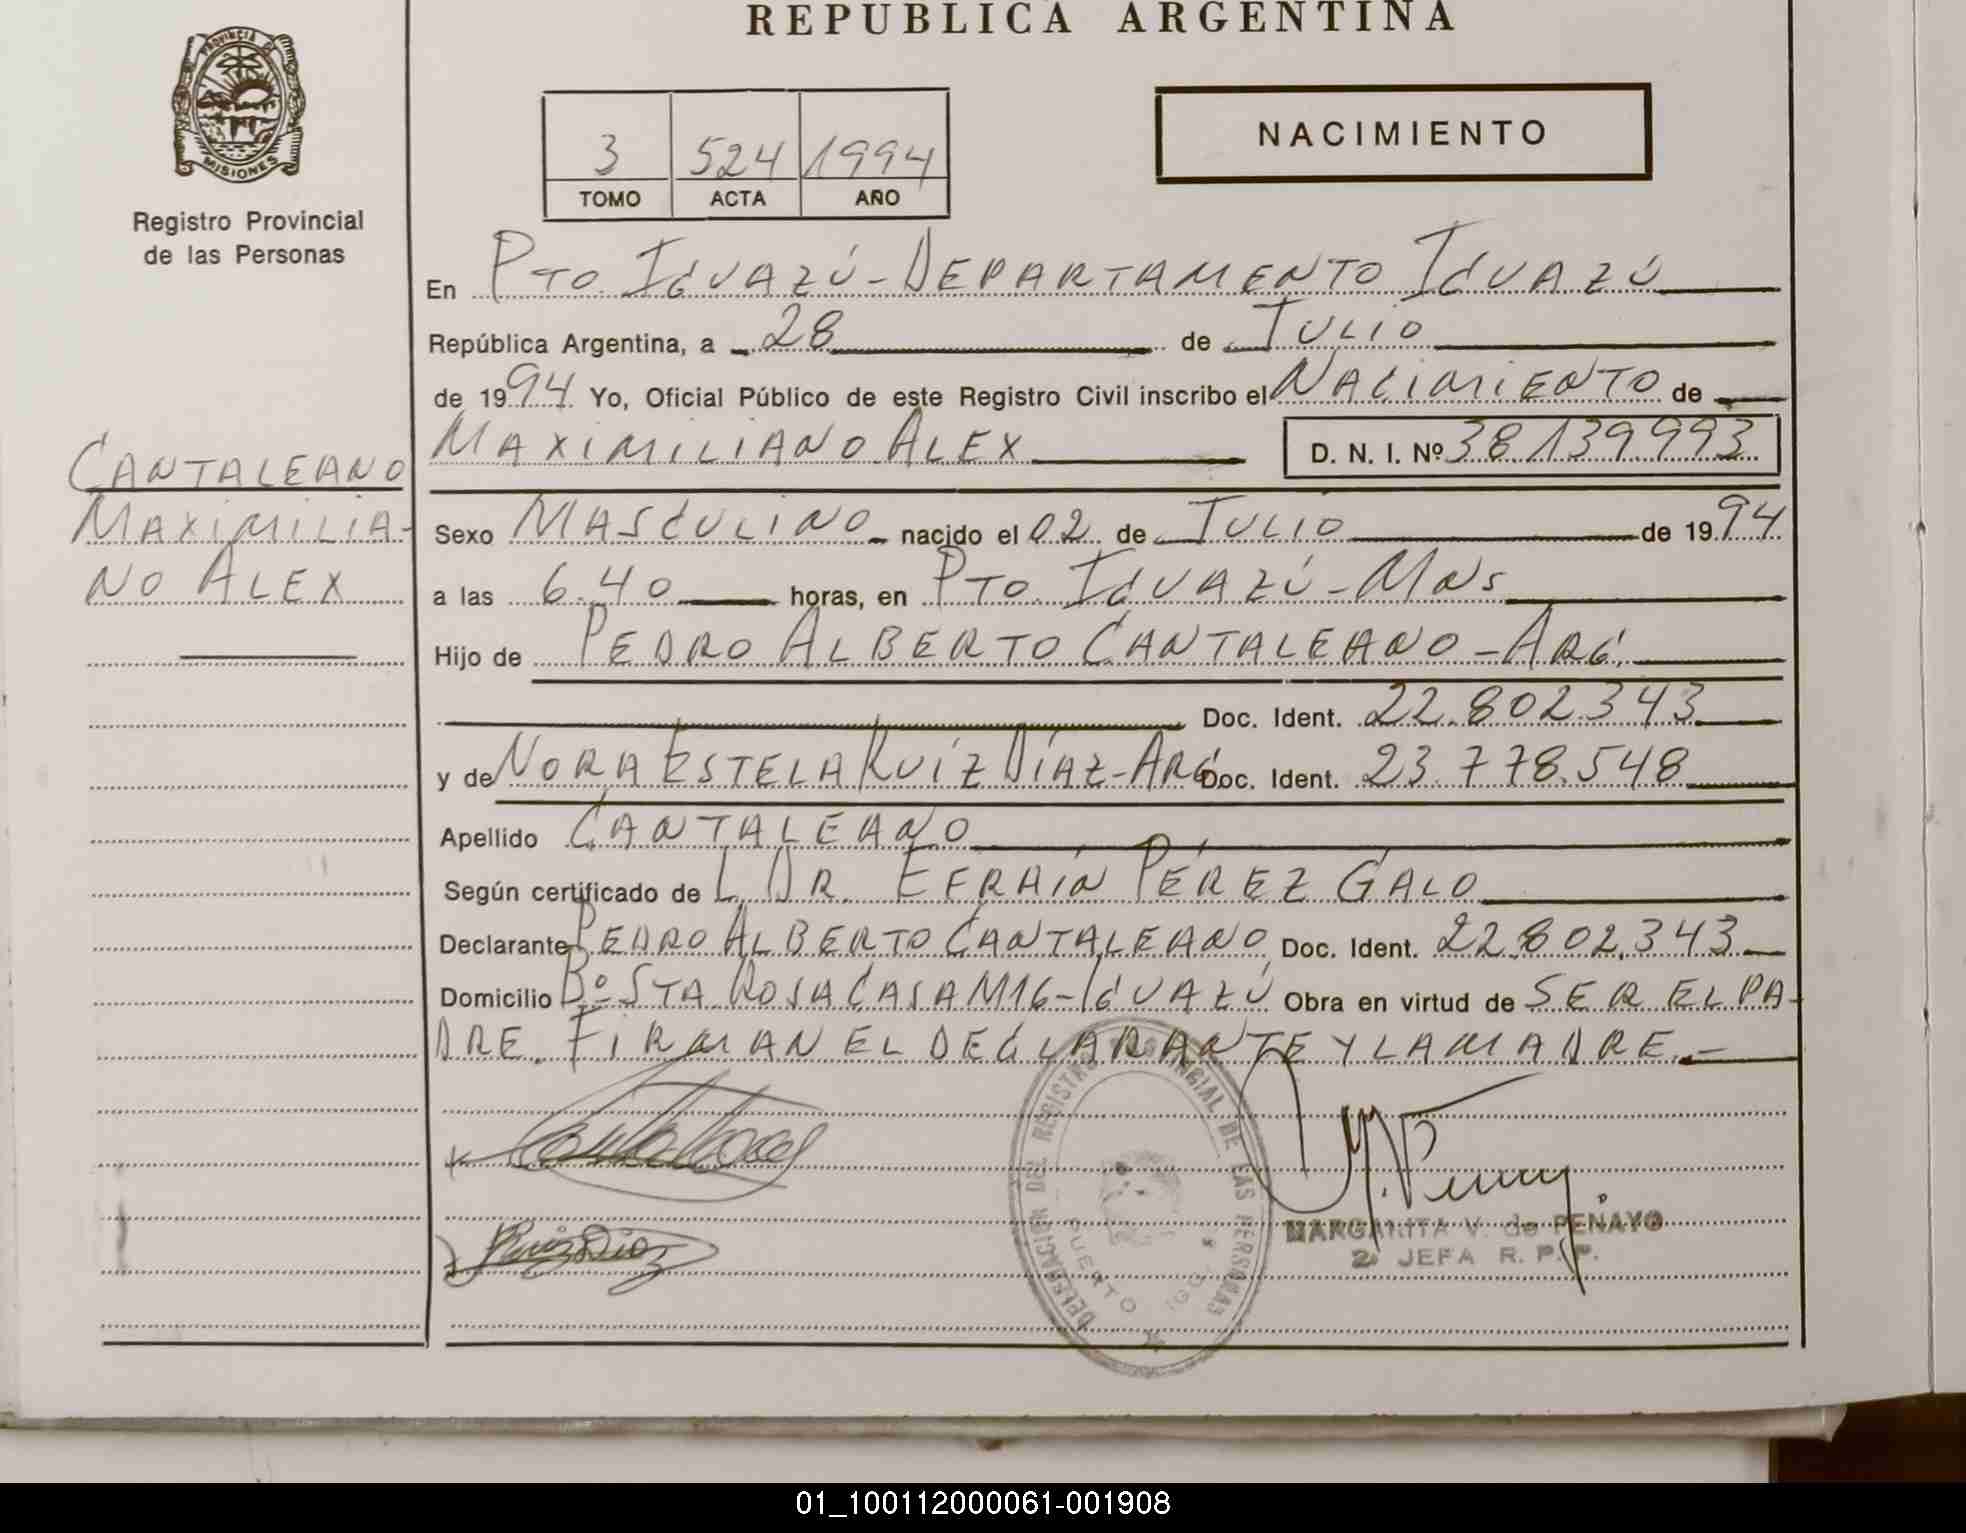 REPUBLICA ARGENTINA
PROVINCIA DE
MISIONES
Registro Provincial
de las Personas
NACIMIENTO
3 524 1994
TOMO ACTA AÑO
En PTO. IGUAZÚ - DEPARTAMENTO IGUAZÚ
República Argentina, a 28 de JULIO
de 1994 Yo, Oficial Público de este Registro Civil inscribo el NACIMIENTO de
MAXIMILIANO ALEX D. N. I. Nº 38.139.993
CANTALEANO
MAXIMILIA-
NO ALEX
Sexo MASCULINO nacido el 02 de JULIO de 1994
a las 6.40 horas, en PTO. IGUAZÚ - MNS
Hijo de PEDRO ALBERTO CANTALEANO - ARG.
Doc. Ident. 22.802.343
y de NORA ESTELA RUÍZ DÍAZ - ARG. Doc. Ident. 23.778.548
Apellido CANTALEANO
Según certificado de L. DR. EFRAÍN PÉREZ GALO
Declarante PEDRO ALBERTO CANTALEANO Doc. Ident. 22.802.343
Domicilio Bº STA ROSA CASA M16 - IGUAZÚ Obra en virtud de SER EL PA-
DRE. FIRMAN EL DECLARANTE Y LA MADRE.-
Ruiz Diaz
DELEGACIÓN DEL REGISTRO PROVINCIAL DE LAS PERSONAS
PUERTO IGUAZÚ
MARGARITA V. de PENAYO
2ª JEFA R. P. P.
01_100112000061-001908